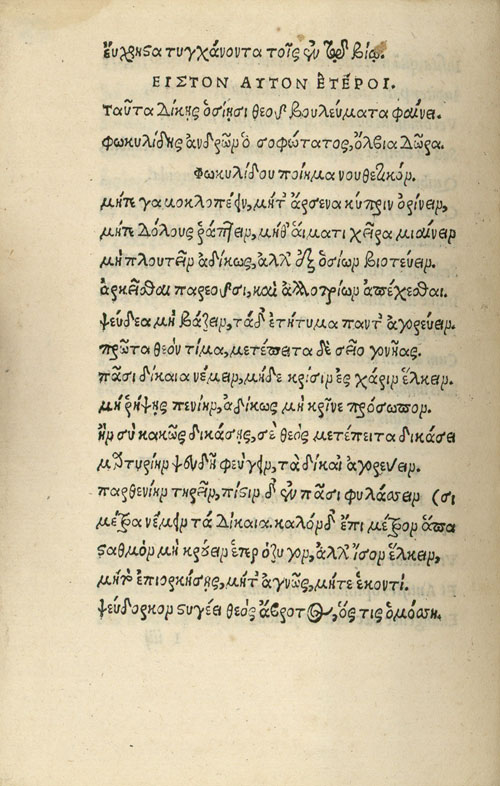 εὔχρηστα τυγχάνοντα τοῖς ἐν τῷδε βίῳ.
ΕΙΣ ΤΟΝ ΑΥΤΟΝ ἙΤΕΡΟΙ.
Ταῦτα Δίκῃς ὁσίῃσι θεοῦ βουλεύματα φαίνει.
Φωκυλίδης ἀνδρῶν ὁ σοφώτατος, ὄλβια Δῶρα.
Φωκυλίδου ποίημα νουθετικόν.
μήτε γαμοκλοπέειν, μήτ᾽ ἄρσενα κύπριν ὀρίνειν,
μήτε Δόλους ῥάπτειν, μήθ᾽ αἵματι χεῖρα μιαίνειν
μὴ πλουτεῖν ἀδίκως, ἀλλ᾽ ἐξ ὁσίων βιοτεύειν.
ἀρκεῖσθαι παρεοῦσι, καὶ ἀλλοτρίων ἀπέχεσθαι.
ψεύδεα μὴ βάζειν, τὰ δ᾽ ἐτήτυμα παντ᾽ ἀγορεύειν.
πρῶτα θεὸν τίμα, μετέπειτα δὲ σεῖο γονῆας.
πᾶσι δίκαια νέμειν, μὴ δὲ κρίσιν ἐς χάριν ἕλκειν.
μὴ ῥίψῃς πενίην, ἀδίκως μὴ κρῖνε πρόσωπον.
ἢν σὺ κακῶς δικάσῃς, σὲ θεὸς μετέπειτα δικάσει
μαρτυρίην ψευδῆ φεύγειν, τὰ δίκαι᾽ ἀγορεύειν.
παρθενίην τηρεῖν, πίστιν δ᾽ ἐν πᾶσι φυλάσσειν (σι
μέτρα νέμειν τά Δίκαια. καλὸν δ᾽ ἔπι μέτρον ἅπα
σταθμὸν μὴ κρούειν ἑτερόζυγον, ἀλλ᾽ ἴσον ἕλκειν,
μήτ᾽ ἐπιορκήσῃς, μήτ᾽ ἀγνῶς, μήτε ἑκοντί.
ψεύδορκον στυγέει θεὸς ἄβροτος, ὅς τις ὀμόσσῃ.